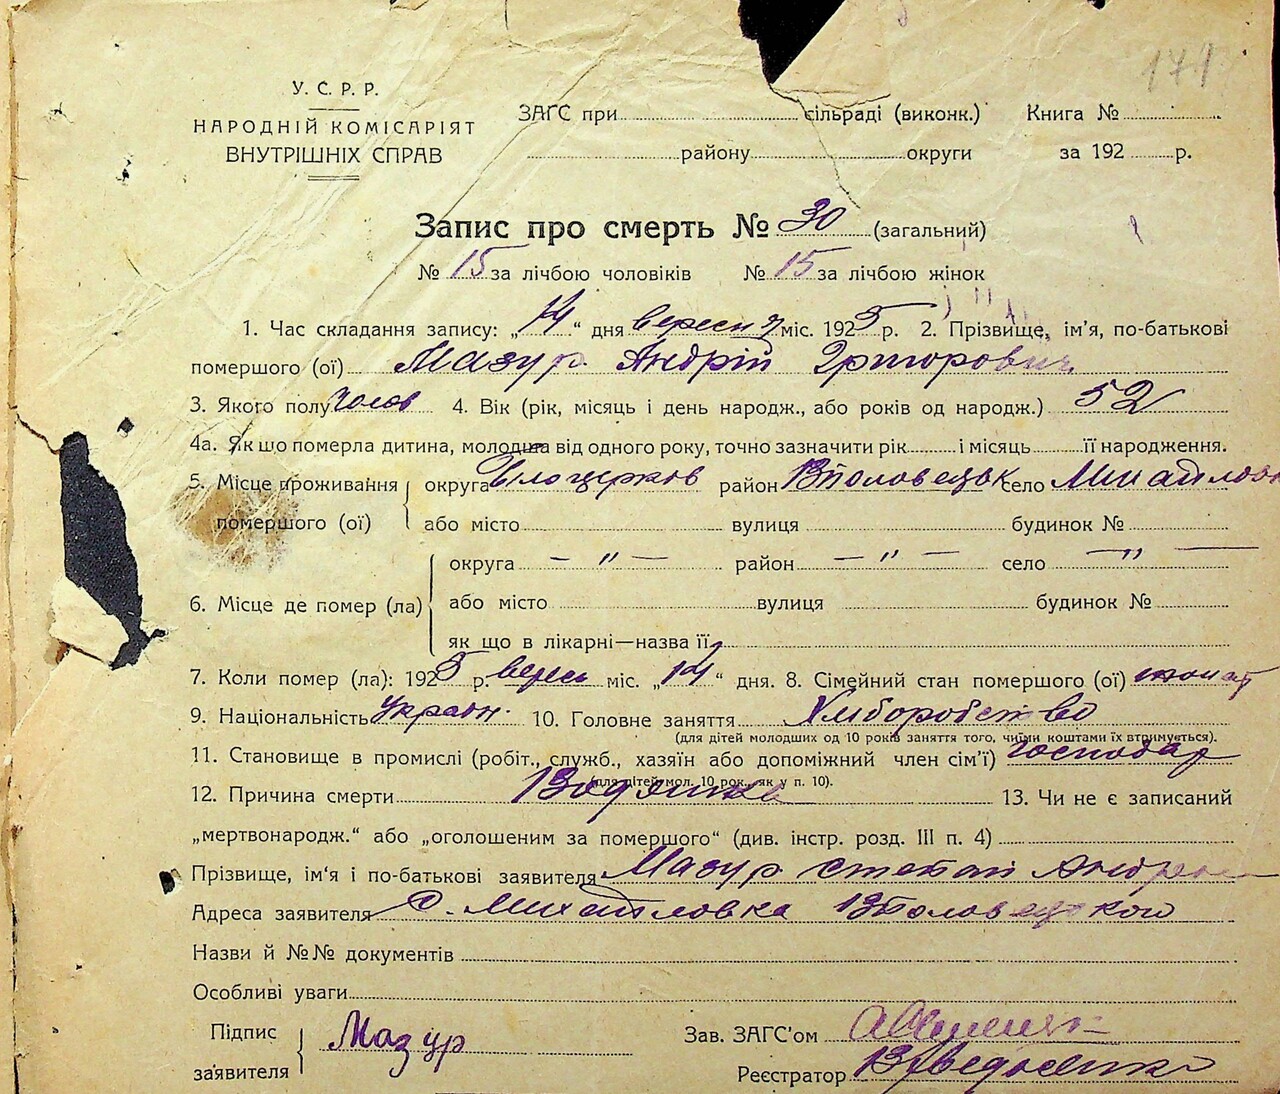 171
У. С. Р. Р.
НАРОДНІЙ КОМІСАРІЯТ
ВНУТРІШНІХ СПРАВ
ЗАГС при сільраді (виконк.) Книга №
району округи за 192 р.
Запис про смерть № 30 (загальний)
№ 15 за лічбою чоловіків № 15 за лічбою жінок
1. Час складання запису: „14“ дня вересня міс. 1925 р. 2. Прізвище, ім'я, по-батькові
помершого (ої) Мазур Андрій Григорович
3. Якого полу чолов 4. Вік (рік, місяць і день народж., або років од народж.) 52
4а. Як що померла дитина, молодша від одного року, точно зазначити рік і місяць її народження.
5. Місце проживання помершого (ої) округа Білоцерков район Вполовецьк село Михайловк
або місто вулиця будинок №
6. Місце де помер (ла) округа — " — район — " — село — " —
або місто вулиця будинок №
як що в лікарні—назва її
7. Коли помер (ла): 1925 р. верес міс. „14“ дня. 8. Сімейний стан помершого (ої) жонат
9. Національність Україн. 10. Головне заняття Хліборобство
(для дітей молодших од 10 років заняття того, чиїми коштами їх втримується).
11. Становище в промислі (робіт., служб., хазяїн або допоміжний член сім'ї) господар
(для дітей мол. 10 рок., як у п. 10).
12. Причина смерти Водянка 13. Чи не є записаний
„мертвонародж.“ або „оголошеним за помершого“ (див. інстр. розд. III п. 4)
Прізвище, ім'я і по-батькові заявителя Мазур Степан Андрее
Адреса заявителя С. Михайловка Вполовецкого
Назви й №№ документів
Особливі уваги
Підпис заявителя Мазур Зав. ЗАГС'ом
Реєстратор